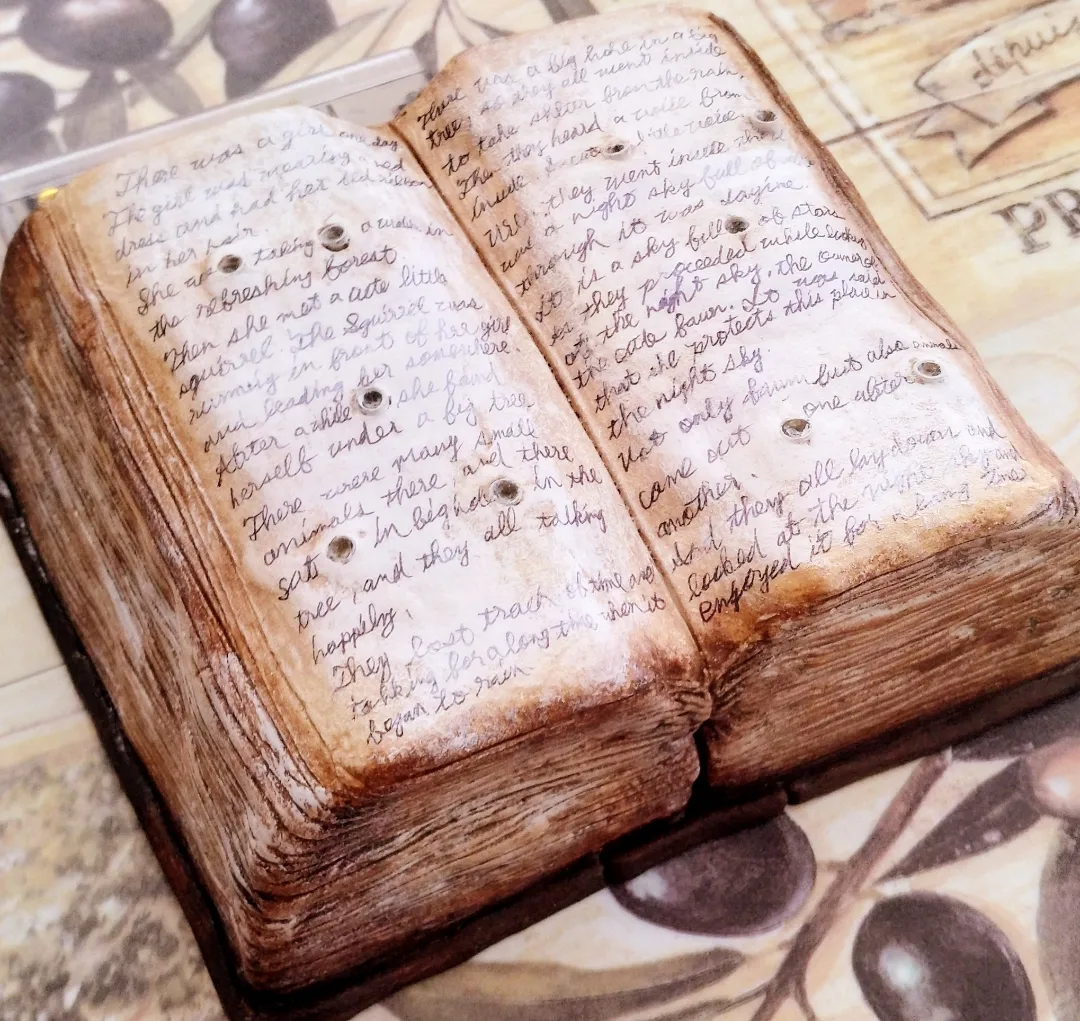 There was a girl one day
The girl was wearing a red
dress and had her red ribbon
in her hair.
She was taking a walk in
the refreshing forest
Then she met a cute little
squirrel. The Squirrel was
running in front of her girl
and leading her somewhere.
After awhile, she fand
herself under a big tree
There were many small
animals there and there
sat in big hole in the
tree, and they all talking
happely.
They lost track of time and
talking for along time when it
began to rain
There was a big hole in a big
tree, so they all went inside
to take shelter from the rain.
The they heard a voice from
inside little voice
they went inside there
was a night sky full of
through it was daytime.
it is a sky full of stars
as they proceeded while looking
at the night sky, the owner of
the cate faun. It was, said
that she protects this place in
the night sky.
Not only faun but also animals
came out one after
another.
And they all lay down and
looked at the night sky and
Enjoyed it for a long time
depuis
PR